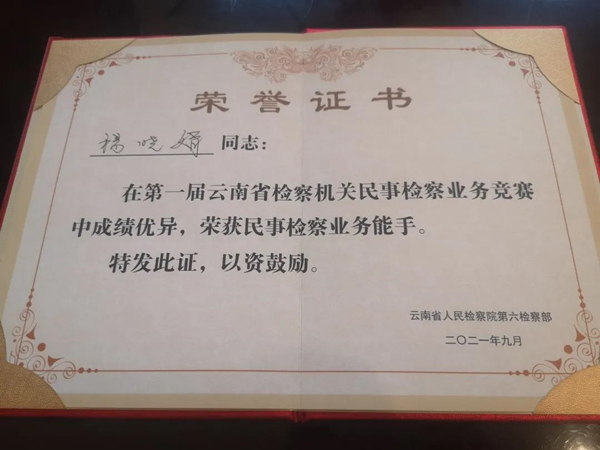 荣誉证书
杨晓婿 同志：
在第一届云南省检察机关民事检察业务竞赛
中成绩优异，荣获民事检察业务能手。
特发此证，以资鼓励。
云南省人民检察院第六检察部
二〇二一年九月